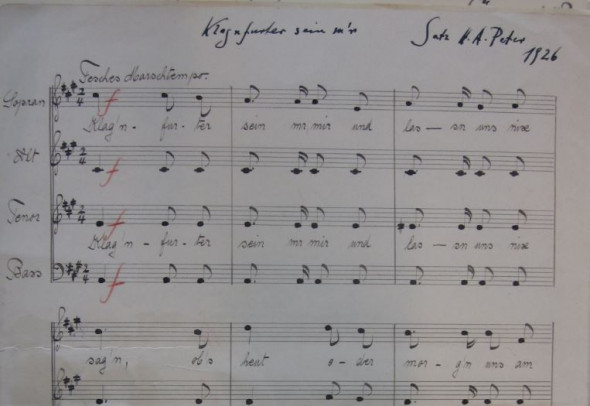 Klagnfurter sein m'r Satz H. A. Peter
1926
Fesches Marschtempo.
Sopran 2/4 f
Klag'n- fur- ter sein mr mir und las — sn uns nixe
Alt 2/4 f
Tenor 2/4 f
Klag'n - fur- ter sein mr mir und las — sn uns nix
Bass 2/4 f
sag'n, ob's heut o - der mor- g'n uns am